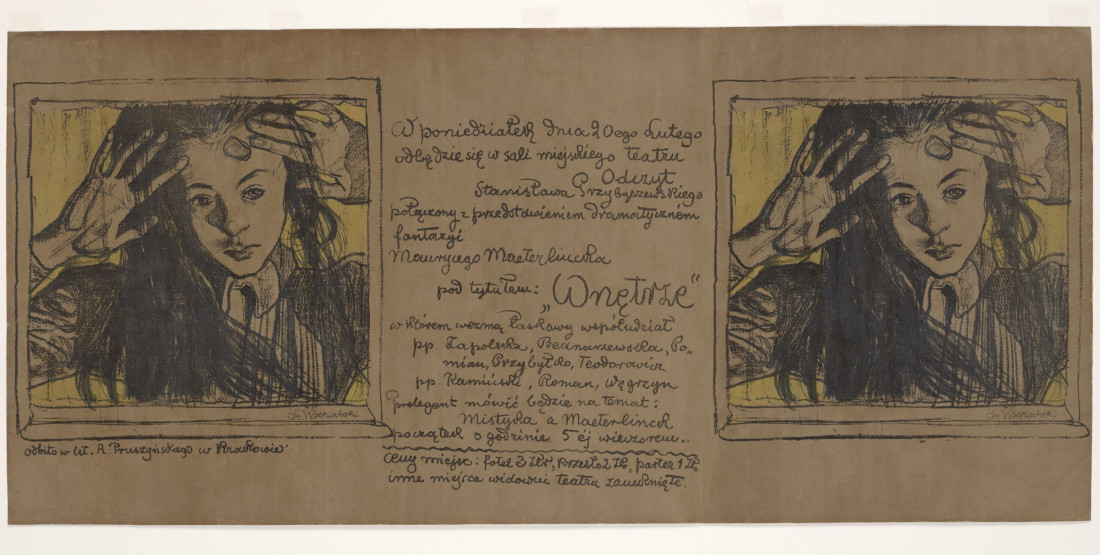 W poniedziałek dnia 20ego Lutego
odbędzie się w sali miejskiego teatru
Odczyt
Stanisława Przybyszewskiego
połączony z przedstawieniem dramatycznem
fantazyi
Maurycego Maeterlincka
pod tytułem: „Wnętrze"
w którem wezmą łaskawy współudział
pp. Zapolska, Bednarzewska, Po„
mian, Przybyłko, Teodorowicz
pp. Kamiński, Roman, Węgrzyn
prelegent mówić będzie na temat:
Mistyka a Maeterlinck
początek o godzinie 5ej wieczorem..
Ceny miejsc: fotel 3 Złr, krzesło 2 Zł, parter 1 Zł,
inne miejsca widowni teatru zamknięte.
St. Wyspiański
St. Wyspiański
odbito w lit. A. Pruszyńskiego w Krakowie